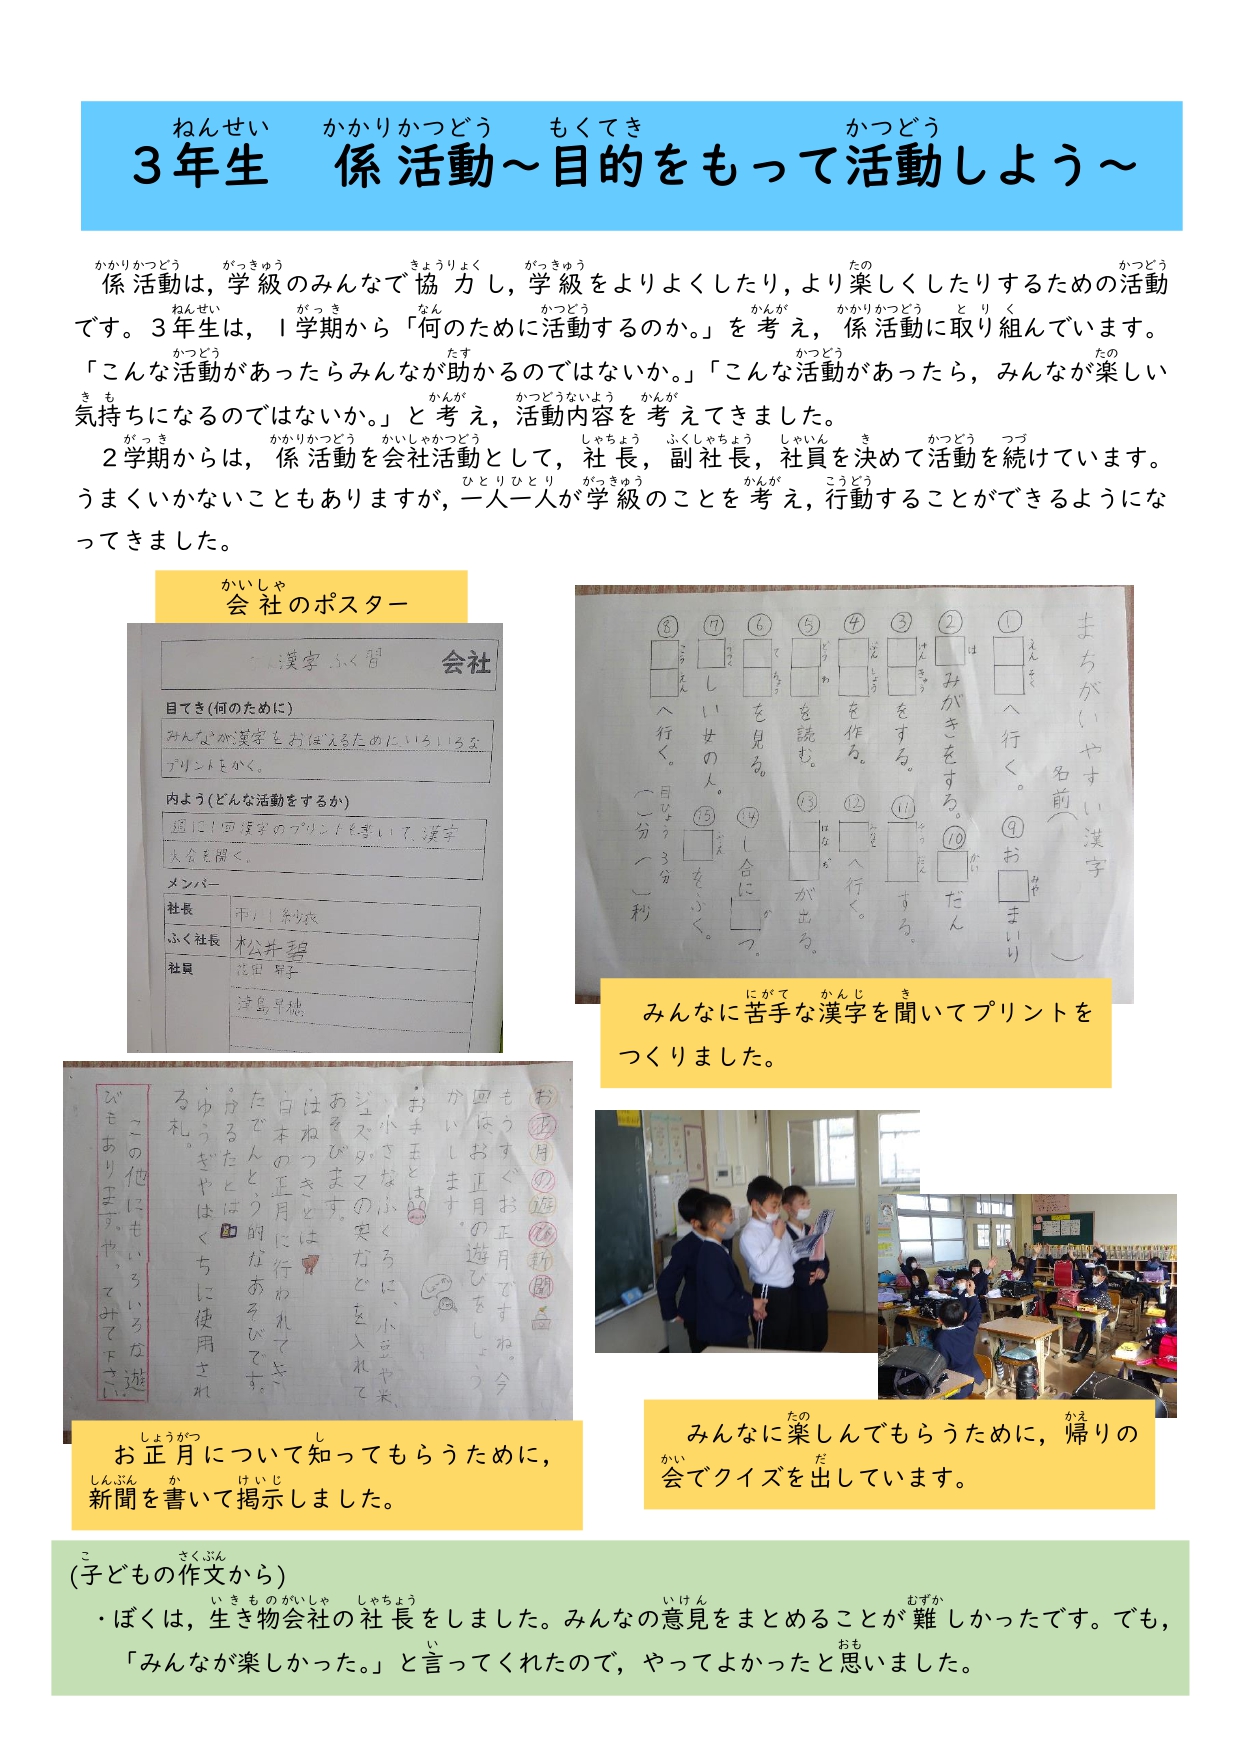 3年生　係活動～目的をもって活動しよう～
ねんせい　かかりかつどう　もくてき　かつどう
係活動は，学級のみんなで協力し，学級をよりよくしたり，より楽しくしたりするための活動
です。３年生は，１学期から「何のために活動するのか。」を考え，係活動に取り組んでいます。
「こんな活動があったらみんなが助かるのではないか。」「こんな活動があったら，みんなが楽しい
気持ちになるのではないか。」と考え，活動内容を考えてきました。
２学期からは，係活動を会社活動として，社長，副社長，社員を決めて活動を続けています。
うまくいかないこともありますが，一人一人が学級のことを考え，行動することができるようにな
ってきました。
会社のポスター
漢字ふく習　会社
目てき(何のために)
みんなが漢字をおぼえるためにいろいろな
プリントをかく。
内よう(どんな活動をするか)
週に1回漢字のプリントを書いて、漢字
大会を開く。
メンバー
社長
ふく社長　松井碧
社員
まちがいやすい漢字
名前（　）
①へ行く。
②みがきをする。
③をする。
④を作る。
⑤を読む。
⑥を見る。
⑦しい女の人。
⑧へ行く。
⑨お　まいり
⑩だん
⑪する。
⑫へ行く。
⑬が出る。
⑭し合に　つ。
⑮をふく。
目ひょう　3分
（　）分（　）秒
みんなに苦手な漢字を聞いてプリントを
つくりました。
お正月の遊び新聞
もうすぐお正月ですね。今
回はお正月の遊びをしょう
かいします。
・お手玉とは
小さなふくろに、小豆や米、
ジュズダマの実などを入れて
あそびます。
・はねつきとは
日本の正月に行われてき
たでんとう的なあそびです。
・かるたとは
ゆうぎやばくちに使用され
る札。
この他にもいろいろな遊
びもあります。やってみて下さい。
お正月について知ってもらうために，
新聞を書いて掲示しました。
みんなに楽しんでもらうために，帰りの
会でクイズを出しています。
(子どもの作文から)
・ぼくは，生き物会社の社長をしました。みんなの意見をまとめることが難しかったです。でも，
「みんなが楽しかった。」と言ってくれたので，やってよかったと思いました。